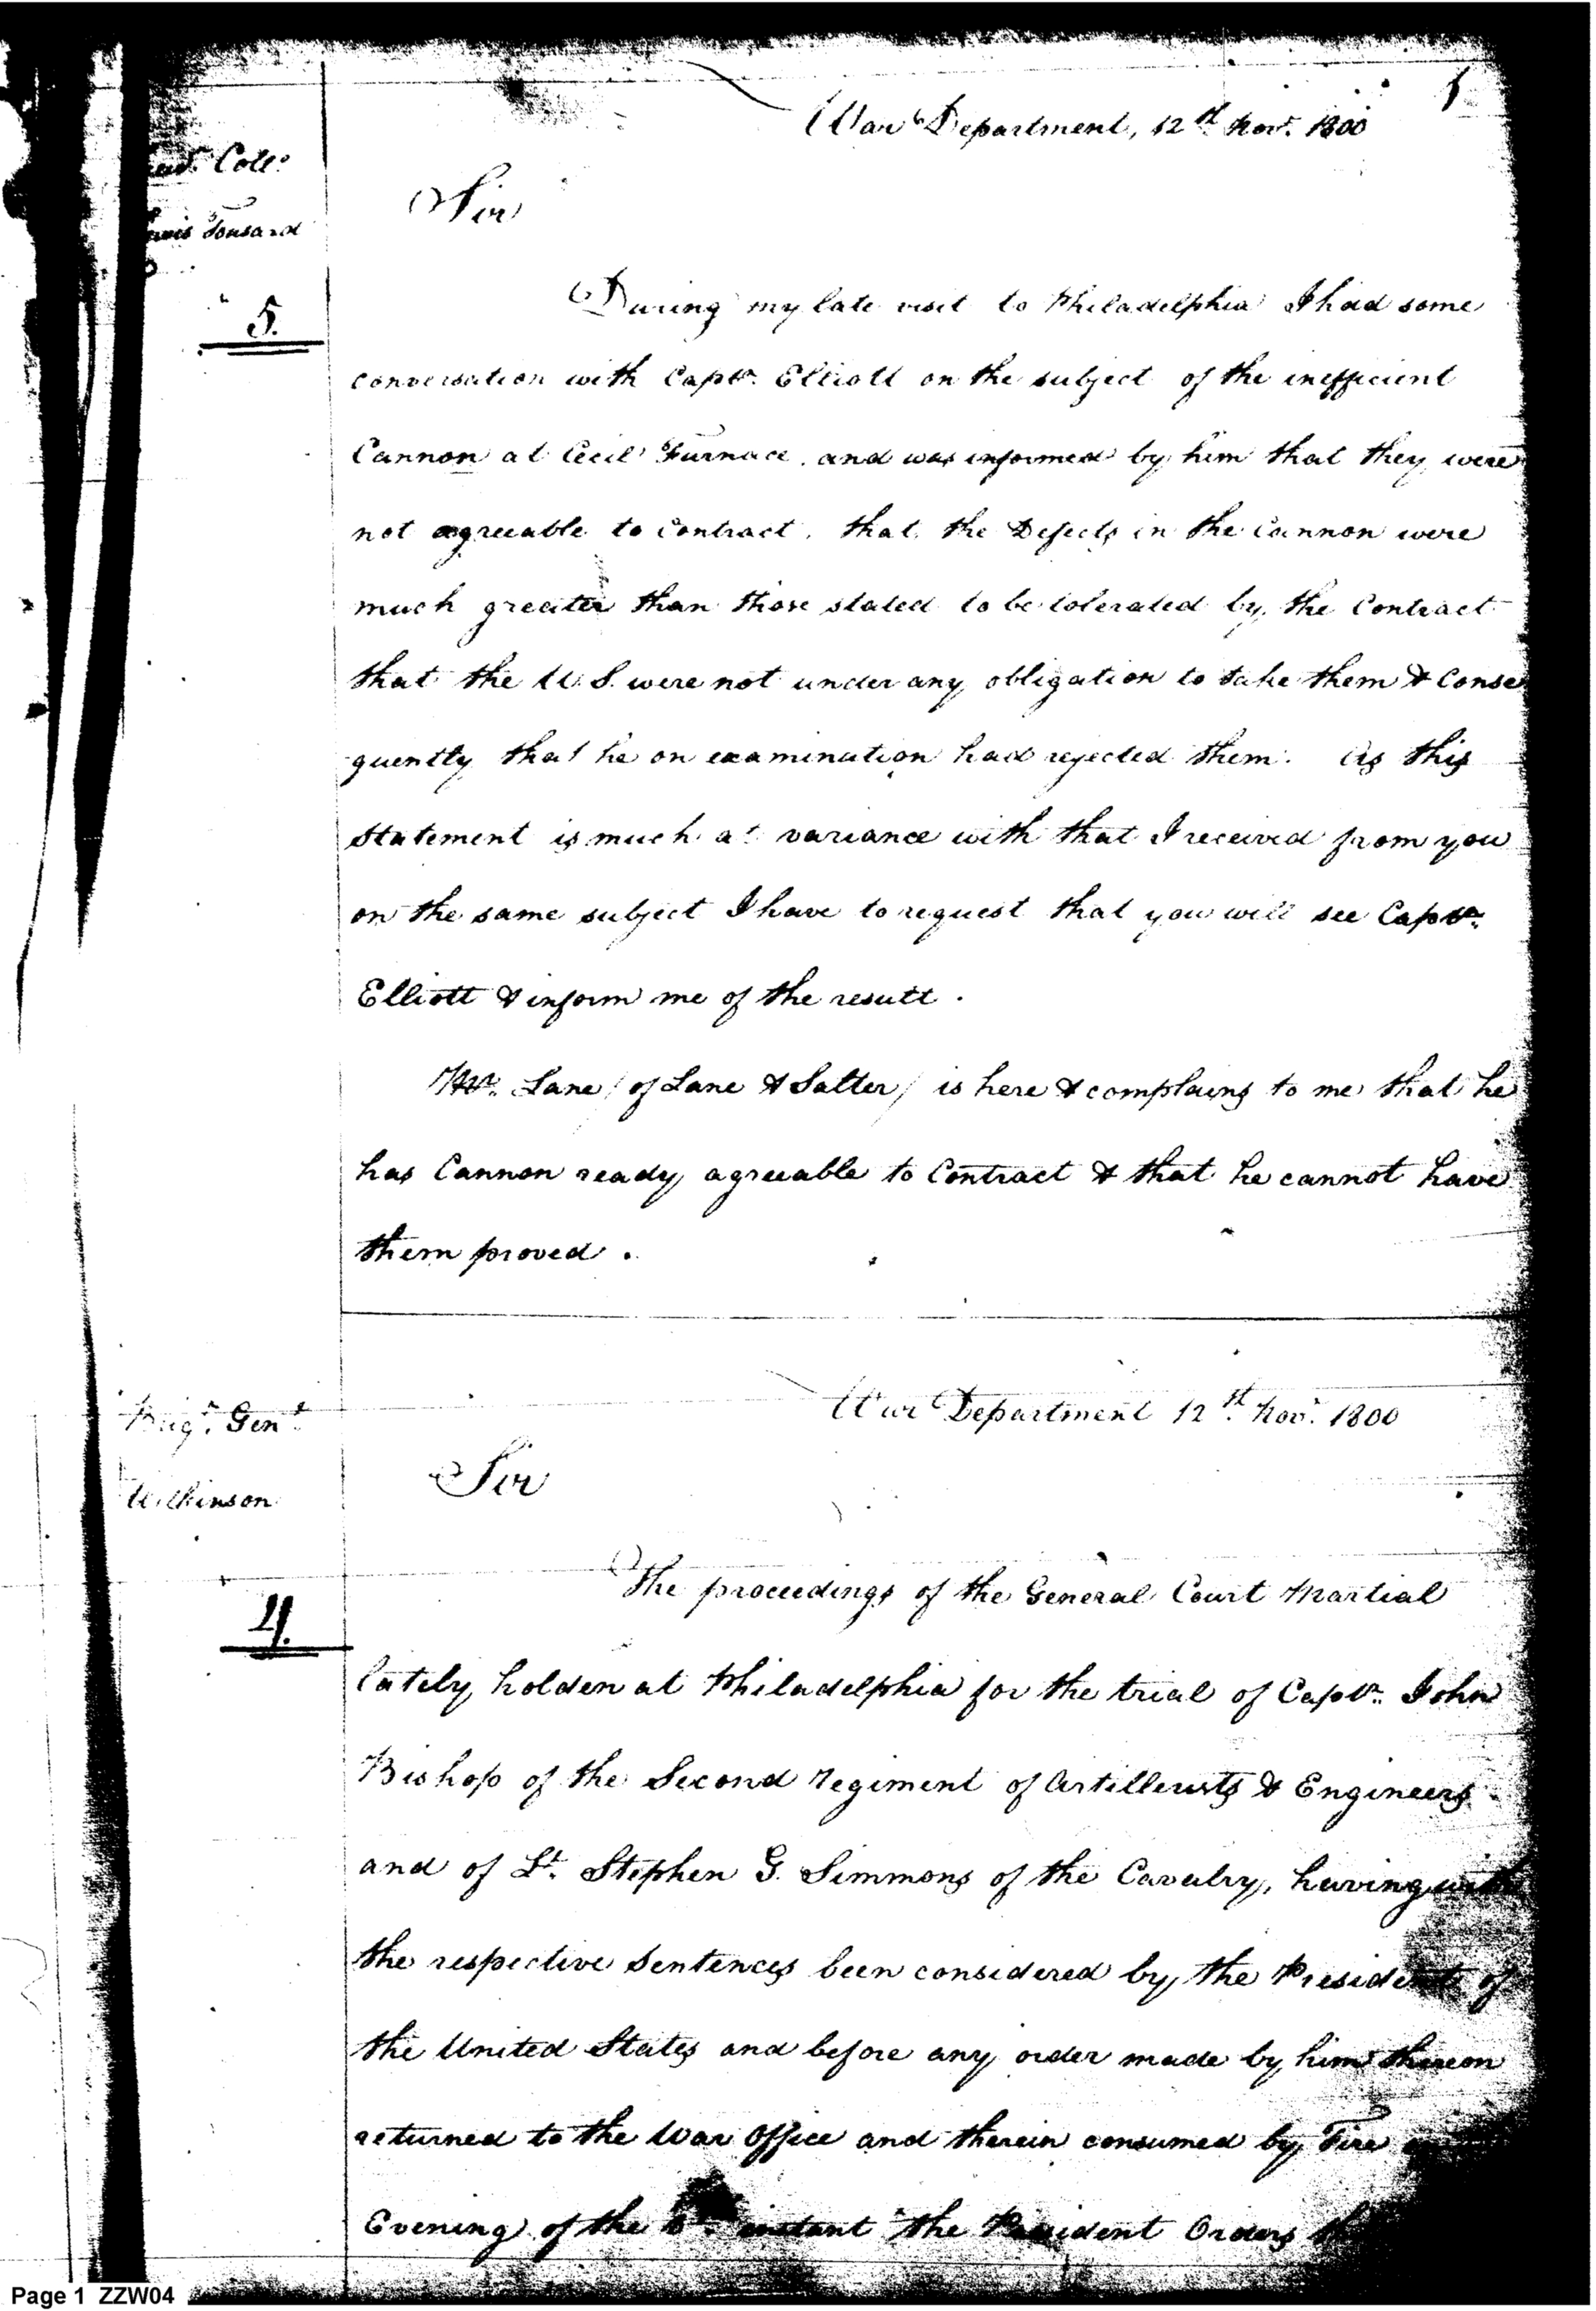 1
War Department, 12th Novr. 1800
Coll:
Tousard
Sir
5.
During my late visit to Philadelphia I had some
conversation with Captn. Elliott on the subject of the inefficient
Cannon at Cecil Furnace, and was informed by him that they were
not agreeable to Contract, that the Defects in the Cannon were
much greater than those stated to be tolerated by the Contract
that the U.S. were not under any obligation to take them & Conse
quently that he on examination had rejected them. As this
statement is much at variance with that I received from you
on the same subject I have to request that you will see Captn.
Elliott & inform me of the result.
Mr. Lane / of Lane & Salter / is here & complains to me that he
has Cannon ready agreeable to Contract & that he cannot have
them proved.
War Department 12th. Novr. 1800
Brigr. Genl.
Wilkinson
Sir
4.
The proceedings of the General Court Martial
lately holden at Philadelphia for the trial of Captn. John
Bishop of the Second regiment of Artillerists & Engineers
and of Lt. Stephen G. Simmons of the Cavalry, having with
the respective Sentences been considered by the President of
the United States and before any order made by him thereon
returned to the War Office and therein consumed by Fire
Evening of the instant the President Orders
Page 1 ZZW04